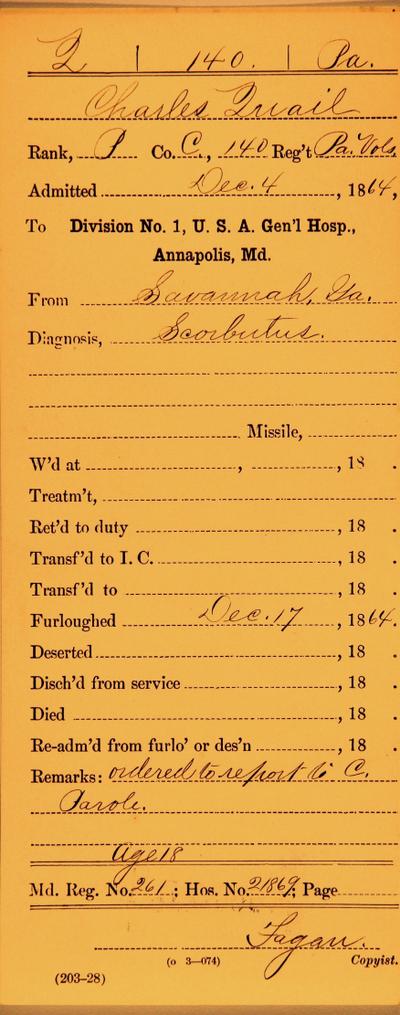 Q | 140. | Pa.
Charles Quail
Rank, P Co. C., 140 Reg't Pa. Vols,
Admitted Dec. 4, 1864,
To Division No. 1, U. S. A. Gen'l Hosp.,
Annapolis, Md.
From Savannah, Ga.
Diagnosis, Scorbutus.
Missile,
W'd at , , 18 .
Treatm't,
Ret'd to duty , 18 .
Transf'd to I. C. , 18 .
Transf'd to , 18 .
Furloughed Dec. 17, 1864.
Deserted , 18 .
Disch'd from service , 18 .
Died , 18 .
Re-adm'd from furlo' or des'n , 18 .
Remarks: ordered to report to C.
Parole.
Age 18
Md. Reg. No. 261; Hos. No. 21869; Page
Fagan.
(o 3—074) Copyist.
(203-28)